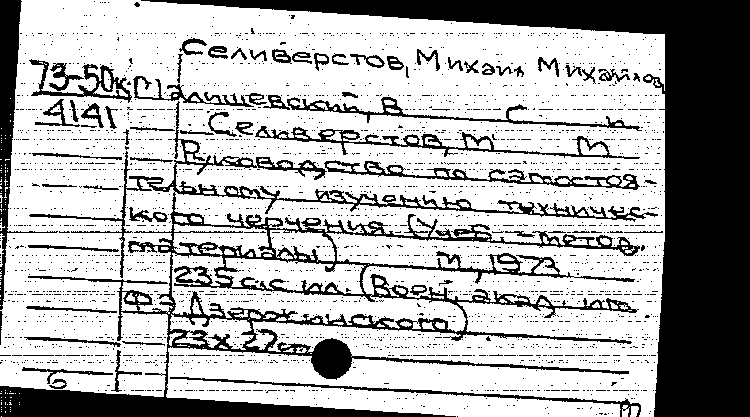 Селиверстов, Михаил Михайлов.
73-50к Малишевский, В С и
4141 Селиверстов, М М
Руководство по самостоя-
тельному изучению техничес-
кого черчения. (Учеб.-метод.
материалы). М., 1973.
235 с. с ил. (Воен. акад. им
Ф Э Дзержинского)
23x27 см
6